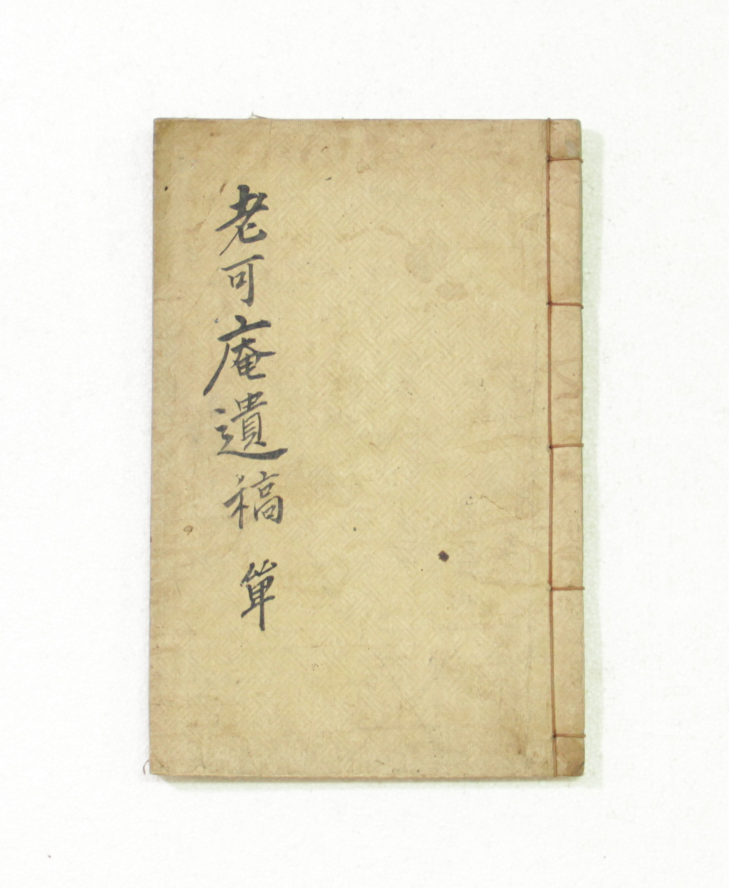 老可庵遺稿 單